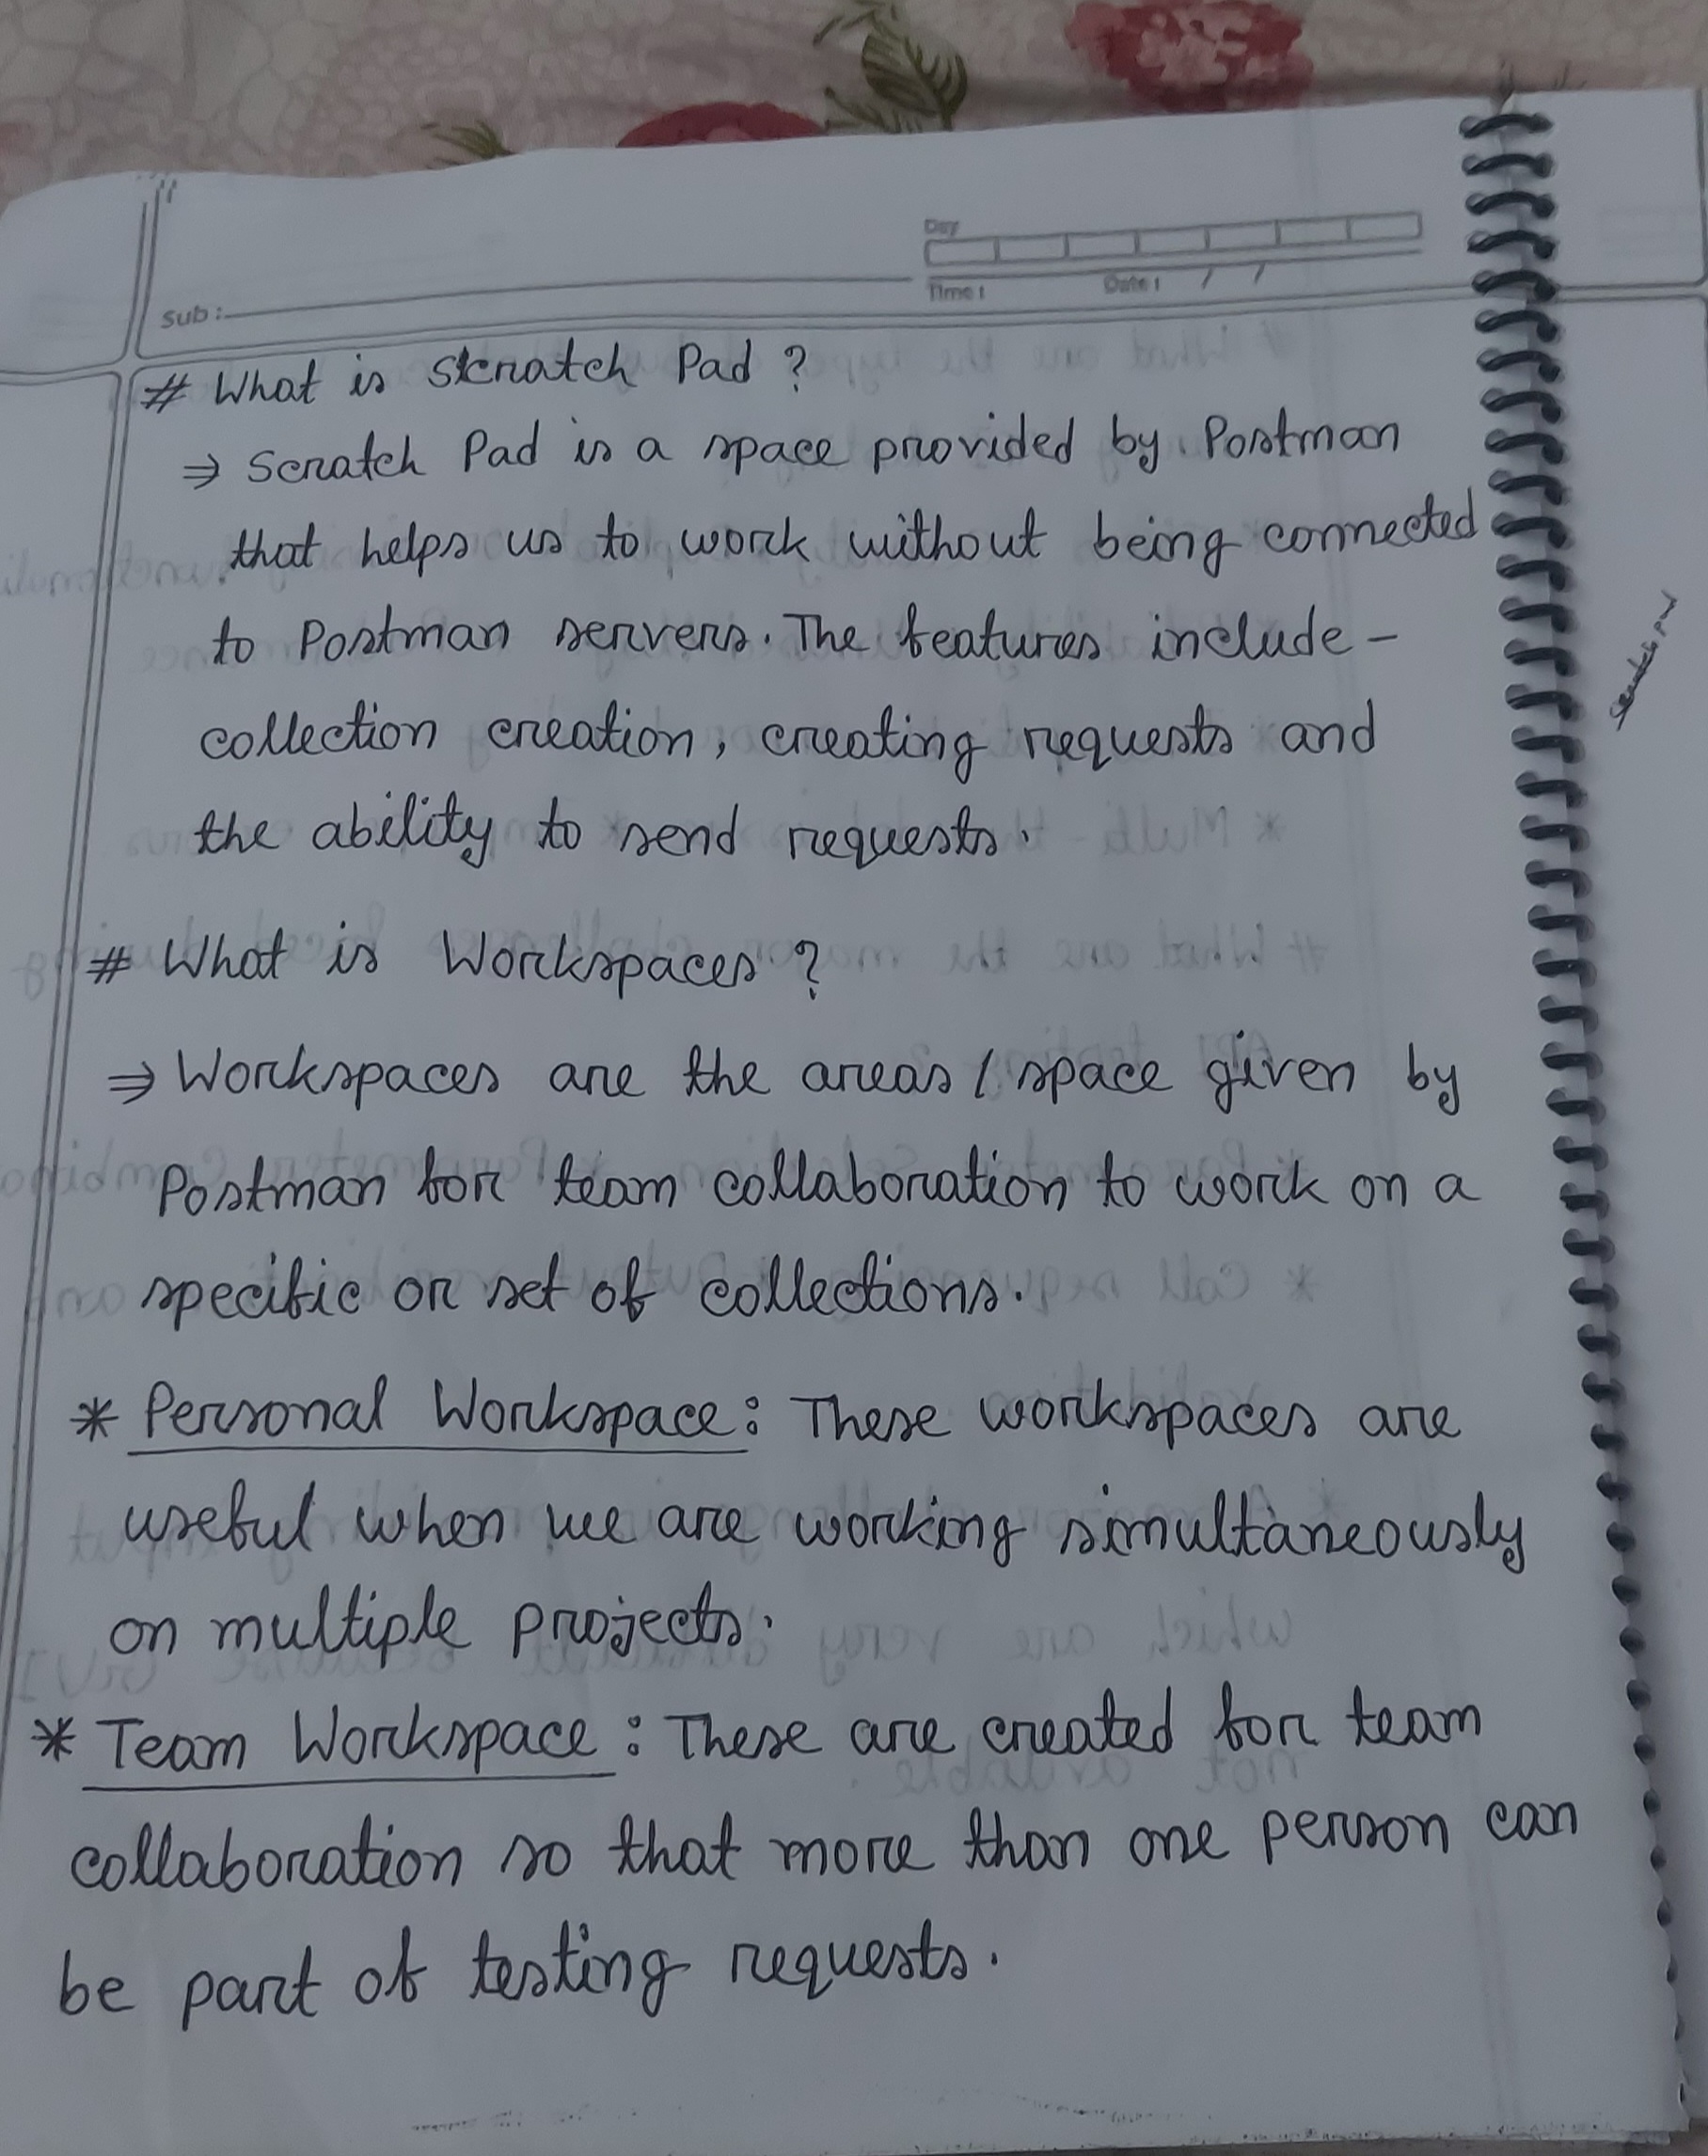 Day
Time :
Date : / /
Sub :
# What is Scratch Pad ?
⇒ Scratch Pad is a space provided by Postman
that helps us to work without being connected
to Postman servers. The features include -
collection creation, creating requests and
the ability to send requests.
# What is Workspaces ?
⇒ Workspaces are the areas / space given by
Postman for team collaboration to work on a
specific or set of collections.
* Personal Workspace : These workspaces are
useful when we are working simultaneously
on multiple projects.
* Team Workspace : These are created for team
collaboration so that more than one person can
be part of testing requests.
Scratch pad